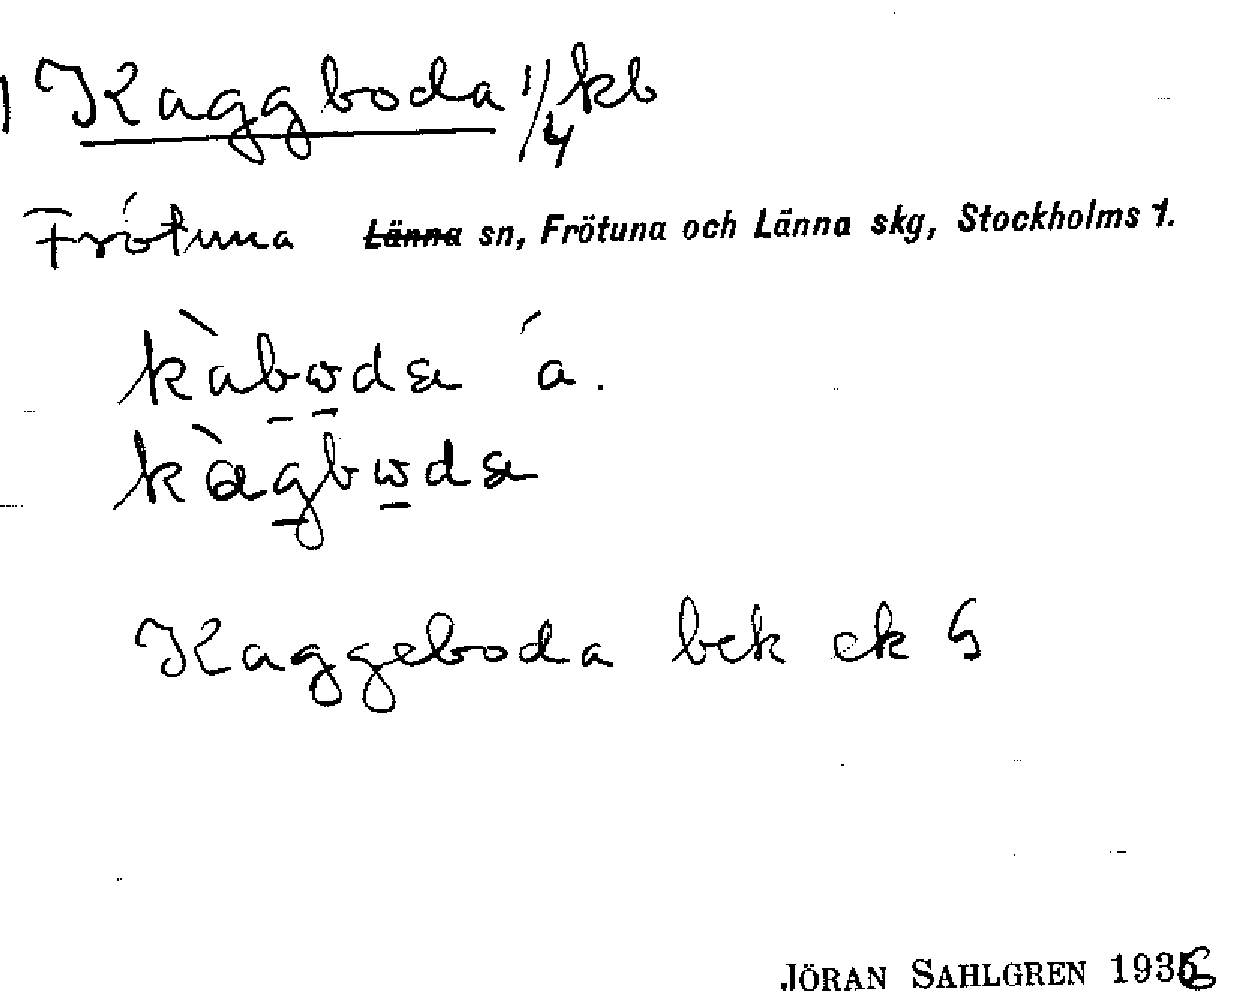 Kaggboda 1/4 kb
Frötuna Länna sn, Frötuna och Länna skg, Stockholms l.
kàbωda á.
kàgbωda
Kaggeboda bek ek
JÖRAN SAHLGREN 1936